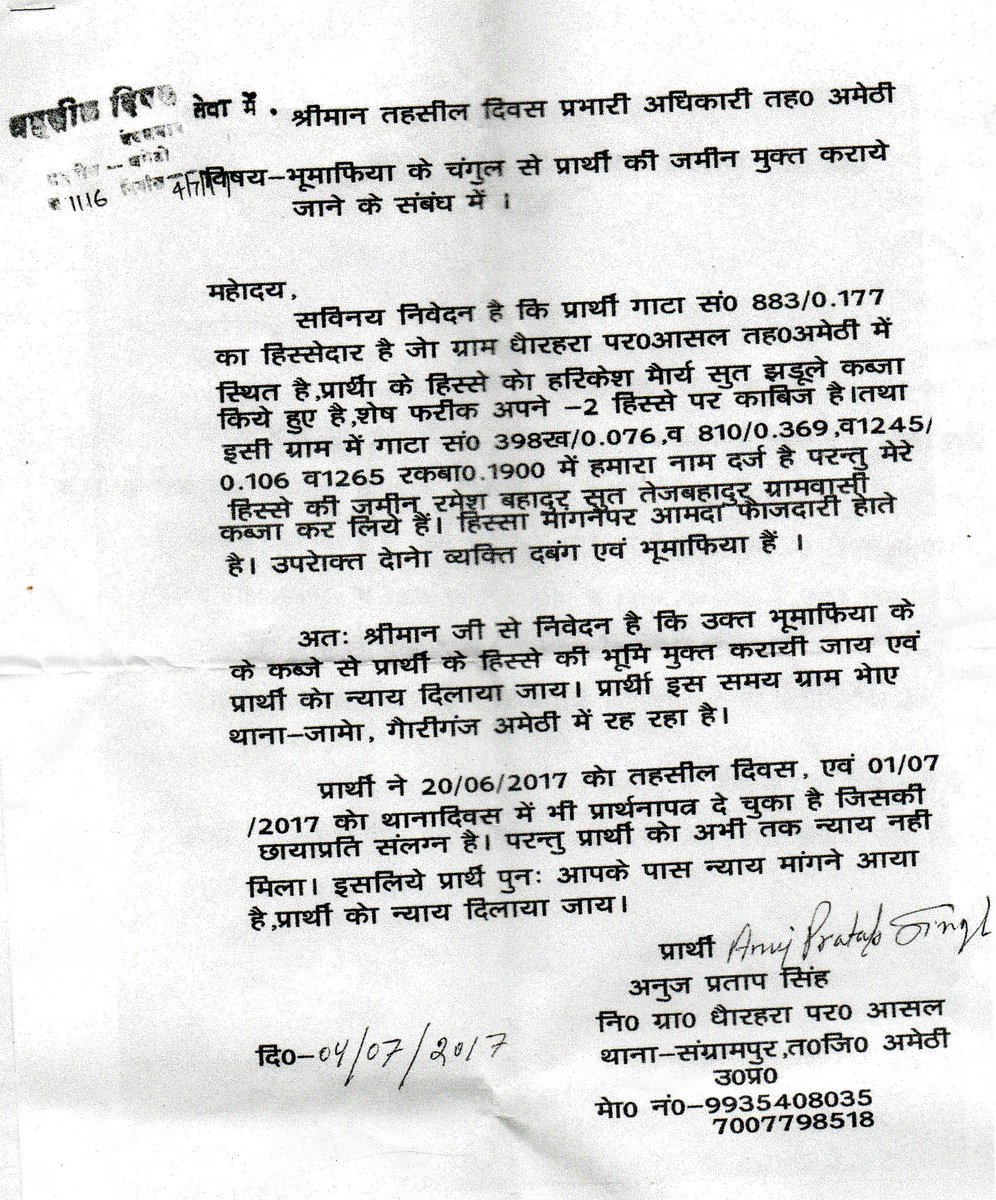 तहसील दिवस
1116
4/7/17
सेवा में . श्रीमान तहसील दिवस प्रभारी अधिकारी तह0 अमेठी
विषय–भूमाफिया के चंगुल से प्रार्थी की जमीन मुक्त कराये
जाने के संबंध में ।
महोदय,
सविनय निवेदन है कि प्रार्थी गाटा सं0 883/0.177
का हिस्सेदार है जो ग्राम धौरहरा पर0आसल तह0अमेठी में
स्थित है,प्रार्थी के हिस्से को हरिकेश मौर्य सुत झडूले कब्जा
किये हुए है,शेष फरीक अपने –2 हिस्से पर काबिज है।तथा
इसी ग्राम में गाटा सं0 398ख/0.076,व 810/0.369,व1245/
0.106 व1265 रकबा0.1900 में हमारा नाम दर्ज है परन्तु मेरे
हिस्से की जमीन रमेश बहादुर सुत तेजबहादुर ग्रामवासी
कब्जा कर लिये हैं। हिस्सा मांगनेपर आमदा फौजदारी होते
है। उपरोक्त दोनो व्यक्ति दबंग एवं भूमाफिया हैं ।
अतः श्रीमान जी से निवेदन है कि उक्त भूमाफिया के
के कब्जे से प्रार्थी के हिस्से की भूमि मुक्त करायी जाय एवं
प्रार्थी को न्याय दिलाया जाय। प्रार्थी इस समय ग्राम भोए
थाना–जामो, गौरीगंज अमेठी में रह रहा है।
प्रार्थी ने 20/06/2017 को तहसील दिवस, एवं 01/07
/2017 को थानादिवस में भी प्रार्थनापत्र दे चुका है जिसकी
छायाप्रति संलग्न है। परन्तु प्रार्थी को अभी तक न्याय नही
मिला। इसलिये प्रार्थी पुनः आपके पास न्याय मांगने आया
है,प्रार्थी को न्याय दिलाया जाय।
प्रार्थी Anuj Pratap Singh
अनुज प्रताप सिंह
नि0 ग्रा0 धौरहरा पर0 आसल
थाना–संग्रामपुर,त0जि0 अमेठी
उ0प्र0
दि0–04/07/2017
मो0 नं0–9935408035
7007798518